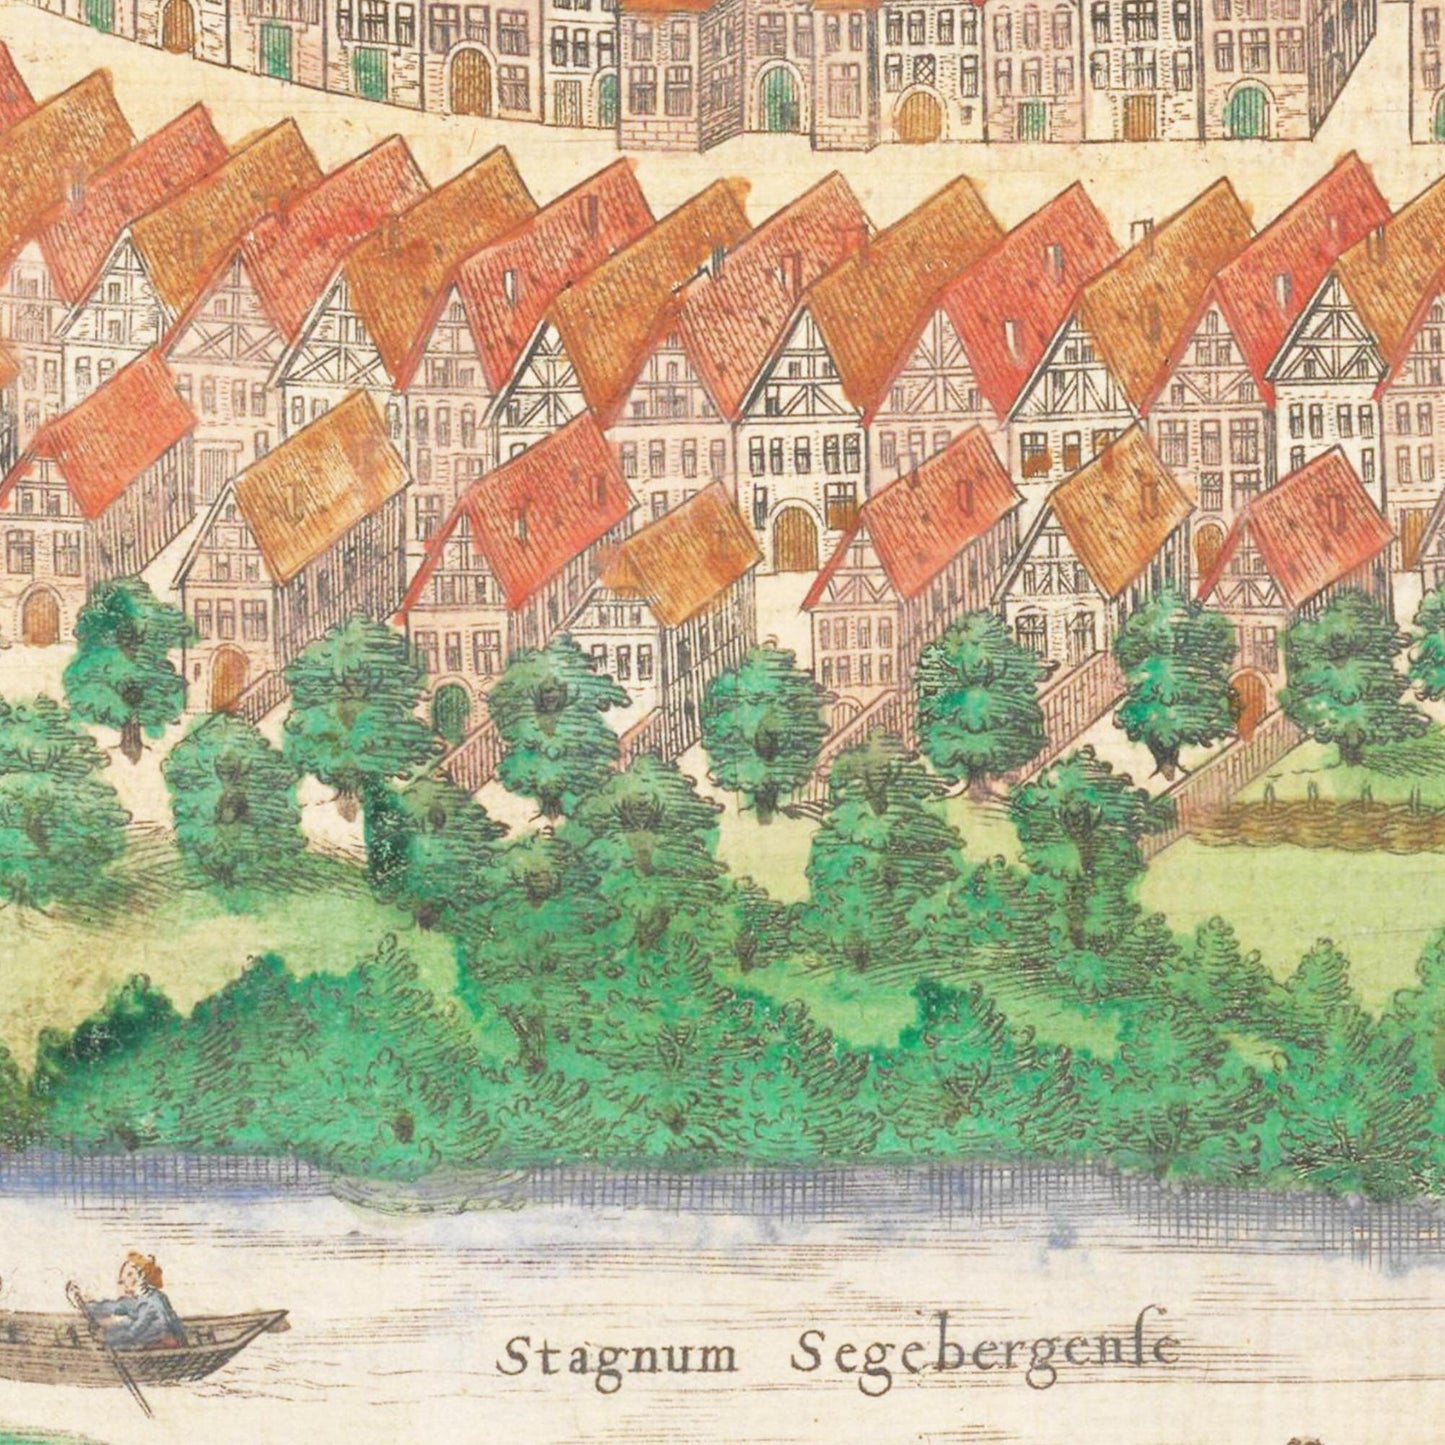 Stagnum Segebergenſe